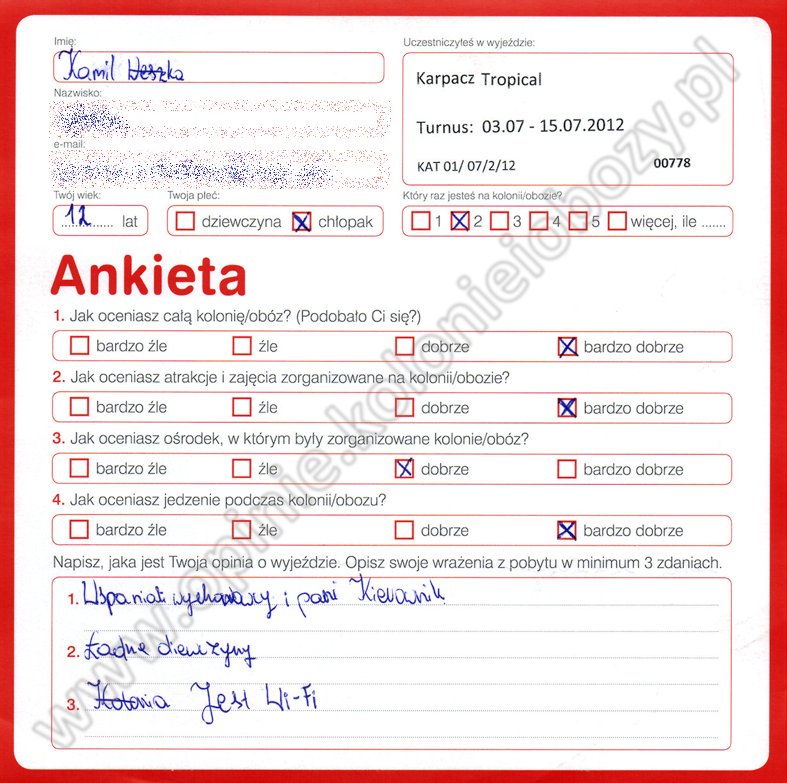 Imię:
Uczestniczyłeś w wyjeździe:
Kamil
Karpacz Tropical
Nazwisko:
Turnus: 03.07 - 15.07.2012
e-mail:
KAT 01/ 07/2/12
00778
Twój wiek:
Twoja płeć:
Który raz jesteś na kolonii/obozie?
12 lat
dziewczyna
chłopak
1 2 3 4 5 więcej, ile .......
Ankieta
1. Jak oceniasz całą kolonię/obóz? (Podobało Ci się?)
bardzo źle
źle
dobrze
bardzo dobrze
2. Jak oceniasz atrakcje i zajęcia zorganizowane na kolonii/obozie?
bardzo źle
źle
dobrze
bardzo dobrze
3. Jak oceniasz ośrodek, w którym były zorganizowane kolonie/obóz?
bardzo źle
źle
dobrze
bardzo dobrze
4. Jak oceniasz jedzenie podczas kolonii/obozu?
bardzo źle
źle
dobrze
bardzo dobrze
Napisz, jaka jest Twoja opinia o wyjeździe. Opisz swoje wrażenia z pobytu w minimum 3 zdaniach.
1. Wspaniali wychowawcy i pani Kierownik
2. Ładne dziewczyny
3. Kolonia Jest Wi-Fi
www.opinie.kolonieiobozy.pl